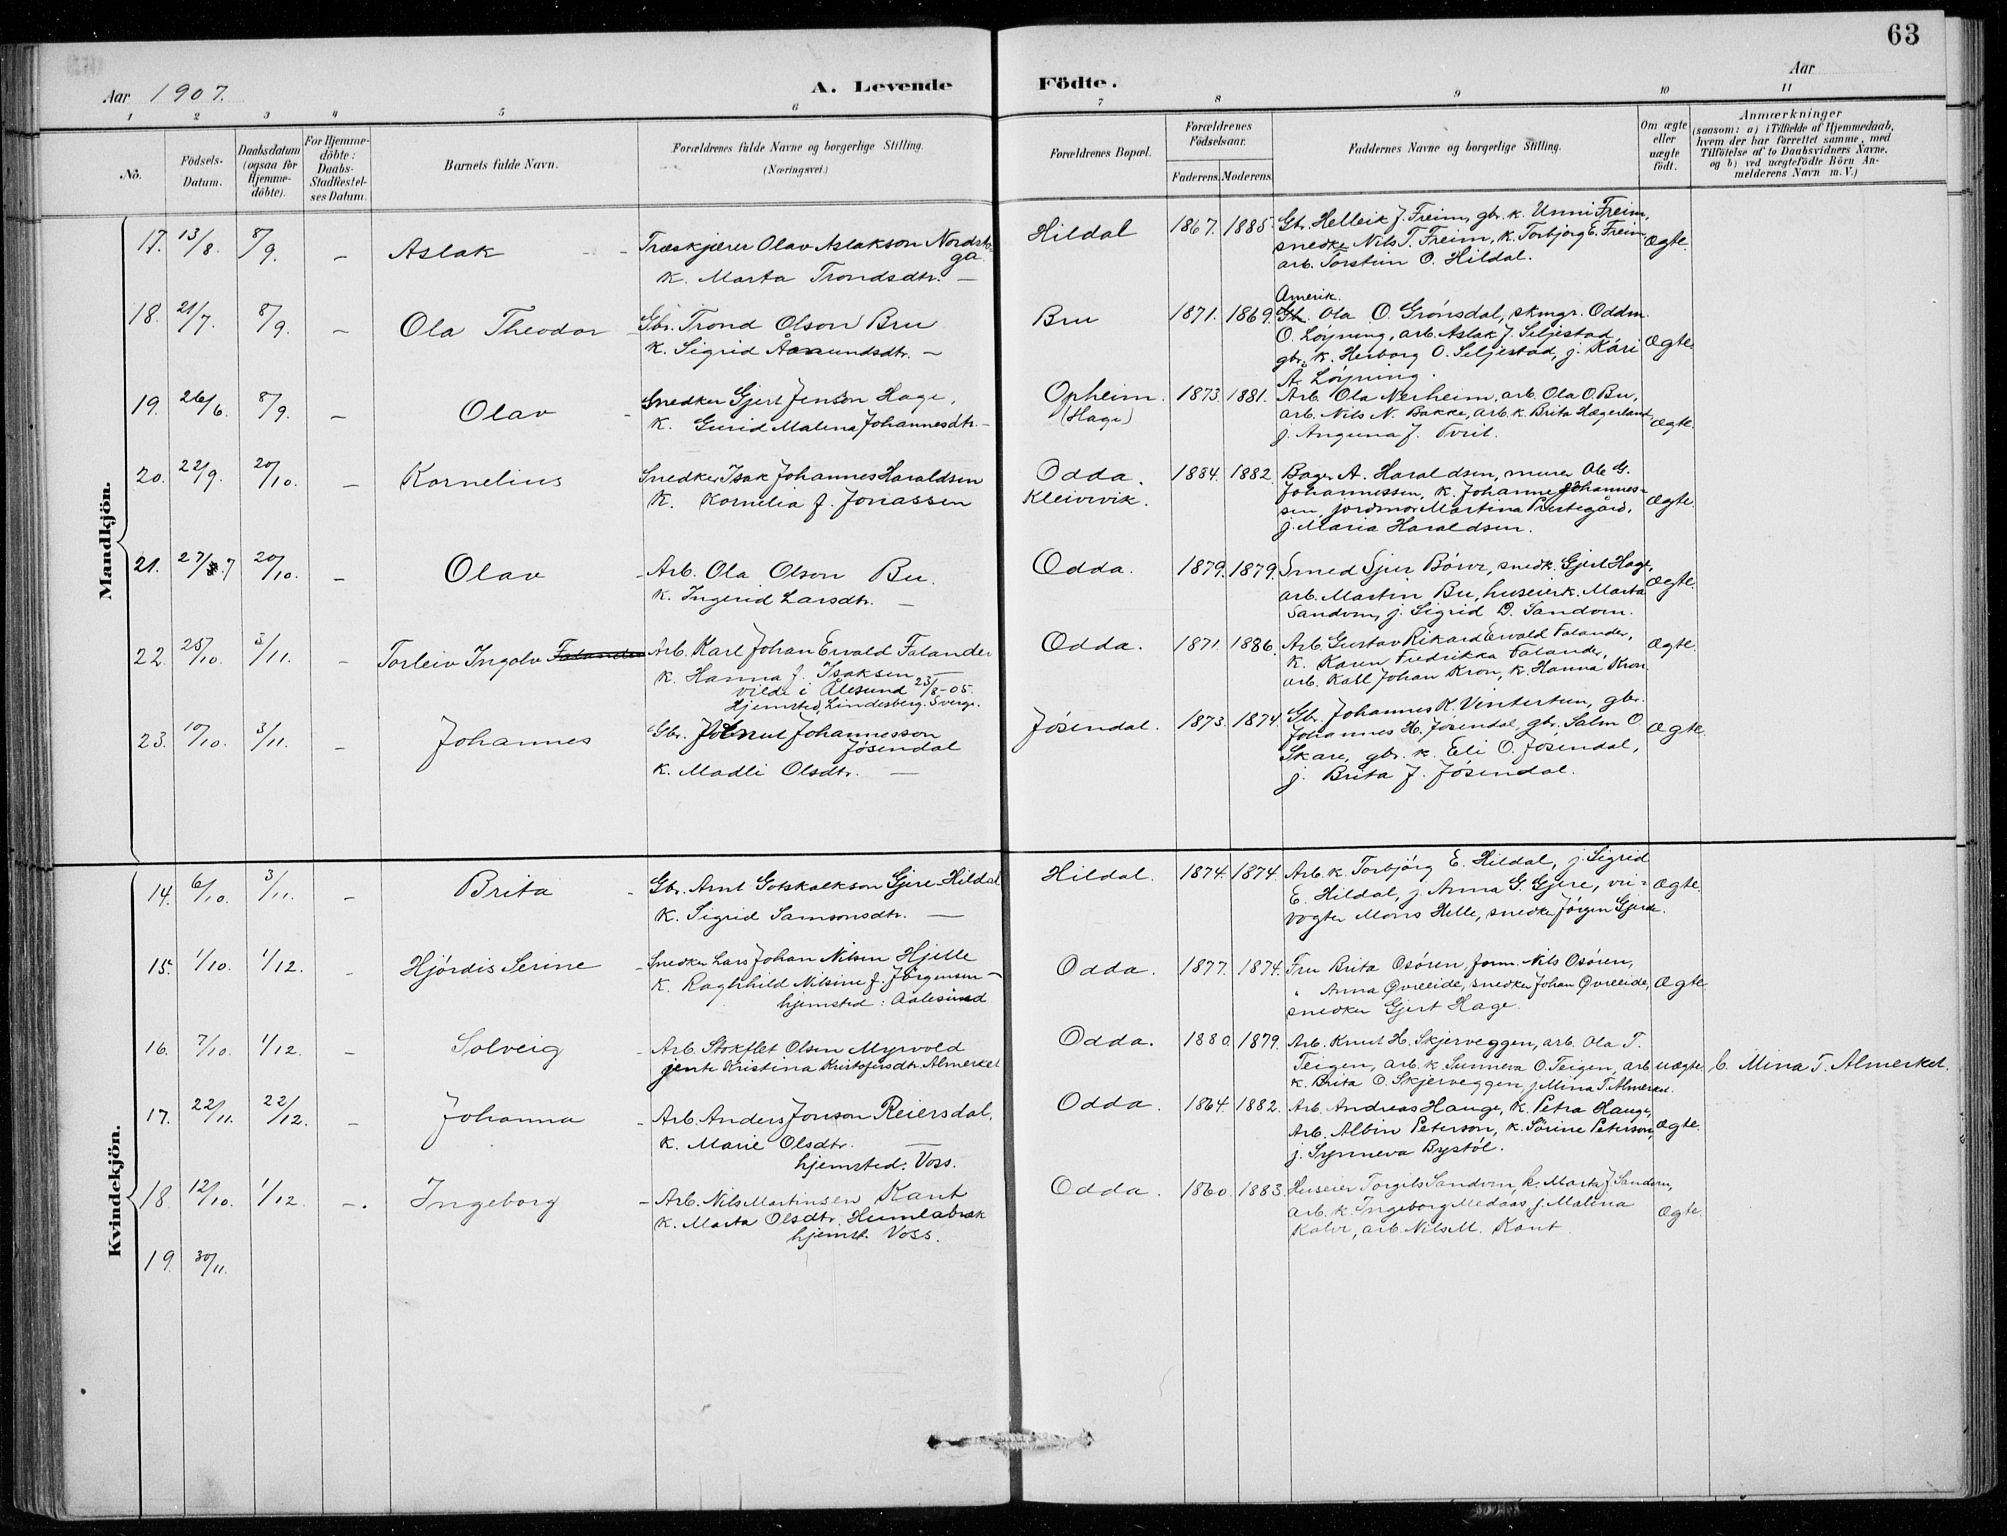 63
Aar 1907. A. Levende Födte. Aar
1 2 3 4 5 6 7 8 9 10 11
No. Födsels-Datum. Daabsdatum (ogsaa for Hjemme-döbte). For Hjemme-döbte: Daabs-Stadfæstel-ses Datum. Barnets fulde Navn. Forældrenes fulde Navne og borgerlige Stilling. (Næringsvei.) Forældrenes Bopæl. Forældrenes Födselsaar. Faderens. Moderens. Faddernes Navne og borgerlige Stilling. Om ægte eller uægte födt. Anmærkninger (saasom: a) i Tilfælde af Hjemmedaab, hvem der har forrettet samme, med Tilföielse af to Daabsvidners Navne, og b) ved uægtefödte Börn An-melderens Navn m. V.)
Mandkjön.
17. 13/8. 8/9. – Aslak – Træskjærer Olav Aslakson Nordstr
ga
k. Marta Trondsdtr. —
Hildal 1867. 1885. Gb. Helleik J. Freim, gbr. k. Unni Freim,
snedker Nils T. Freim, k. Torbjorg E. Freim,
arb. Torstein O. Hildal. ægte.
18. 21/7. 8/9. – Ola Theodor – Gbr. Trond Olson Bru
k. Sigrid Åmundsdtr. —
Bru 1871. 1869. Amerik.
Ola O. Grønsdal, skmgr. Oddm.
O. Löyning, arb. Aslak J. Seljestad
gbr. k. Herborg O. Seljestad, j. Kári
Å. Löyning. ægte
19. 26/6. 8/9. – Olav – Snedker Gjert Jenson Hage,
k. Gurid Malena Johannesdtr. –
Opheim. (Hage) 1873. 1881. Arb. Ola Nerheim, arb. Ola O. Bu,
arb. Nils N. Bakke, arb. k. Brita Hægerland,
j. Anguna J. Tveit. ægte.
20. 22/9. 20/10. – Kornelius Snedker Isak Johannes Haraldsen
k. Kornelia f. Jonassen
Odda. Kleivvik. 1884. 1882. Bager A. Haraldsen, murer Ole G.
Johannessen, k. Johanne Johannes-
sen, jordmor Martina Prestegård,
j. Maria Haraldsen. ægte.
21. 27/7 20/10. – Olav – Arb. Ola Olson Bu.
k. Ingerid Larsdtr. —
Odda. 1879. 1879. Smed Sjur Börve, snedk. Gjert Hage,
arb. Martin Bu, huseier k. Marta
Sandven, j. Sigrid D. Sandven. ægte.
22. 25/10. 3/11. – Torleiv Ingolv Falander Arb. Karl Johan Ervald Falander
k. Hanna f. Isaksen —
viede i Ålesund 23/8-05.
Hjemsted, Lindesberg. Sverge.
Odda. 1871. 1886. Arb. Gustav Rikard Ervald Falander,
k. Karen Fredrikka Falander,
arb. Karl Johan Kron, k. Hanna Kron ægte.
23. 10/10. 3/11. – Johannes Gbr. Johannesson
Jósendal
k. Madli Olsdtr. —
Jósendal. 1873. 1874. Gbr. Johannes K. Vintertun, gbr.
Johannes H. Jósendal, gbr. Salm O.
Skare, gbr. k. Eli O. Jósendal,
j. Brita J. Jósendal. ægte.
Kvindekjön.
14. 6/10. 3/11. – Brita – Gbr. Arnt Gotskalkson Gjere-Hildal
k. Sigrid Samsonsdtr. —
Hildal. 1874. 1874. Arb. k. Torbjörg E. Hildal, j. Sigrid
E. Hildal, j. Anna G. Gjere, vei-
vogter Mons Helle, snedker Jörgen Gjerde. ægte.
15. 1/10. 1/12. – Hjördis Serine – Snedker Lars Johan Nilsen Hjelle
k. Raghhild Nilsine f. Jörgensen –
hjemsted: Aalesund
Odda. 1877. 1874. Fru Brita Osören, form. Nils Osören,
" Anna Øvreeide, snedker Johan Øvreeide,
snedker Gjert Hage. ægte
16. 7/10. 1/12. – Solveig – Arb. Stokflet Olsen Myrvold
jente Kristina Kristofersdtr. Almerket
Odda. 1880. 1879. Arb. Knut H. Skjerveggen, arb. Ola T.
Teigen, arb. k. Sunneva O. Teigen, arb.
k. Brita O. Skjerveggen, j. Mina T. Almerket. uægte b. Mina T. Almerket.
17. 22/11. 22/12. – Johanna – Arb. Anders Jonson Reiersdal,
k. Marie Olsdtr. —
hjemsted: Voss.
Odda. 1864. 1882. Arb. Andreas Hauge, k. Petra Hauge,
Arb. Albin Peterson, k. Sörine Peterson,
j. Synneva Bystöl. ægte.
18. 12/10. 1/12. – . Ingeborg – Arb. Nils Martinsen Kant
k. Marta Olsdtr. Humlabrek
hjemst. Voss.
Odda. 1860. 1883. Huseier Torgils Sandven, k. Marta J. Sandven,
arb. k. Ingeborg Medaas, j. Malena
Kalve, arb. Nils M. Kant ægte.
19. 30/11.